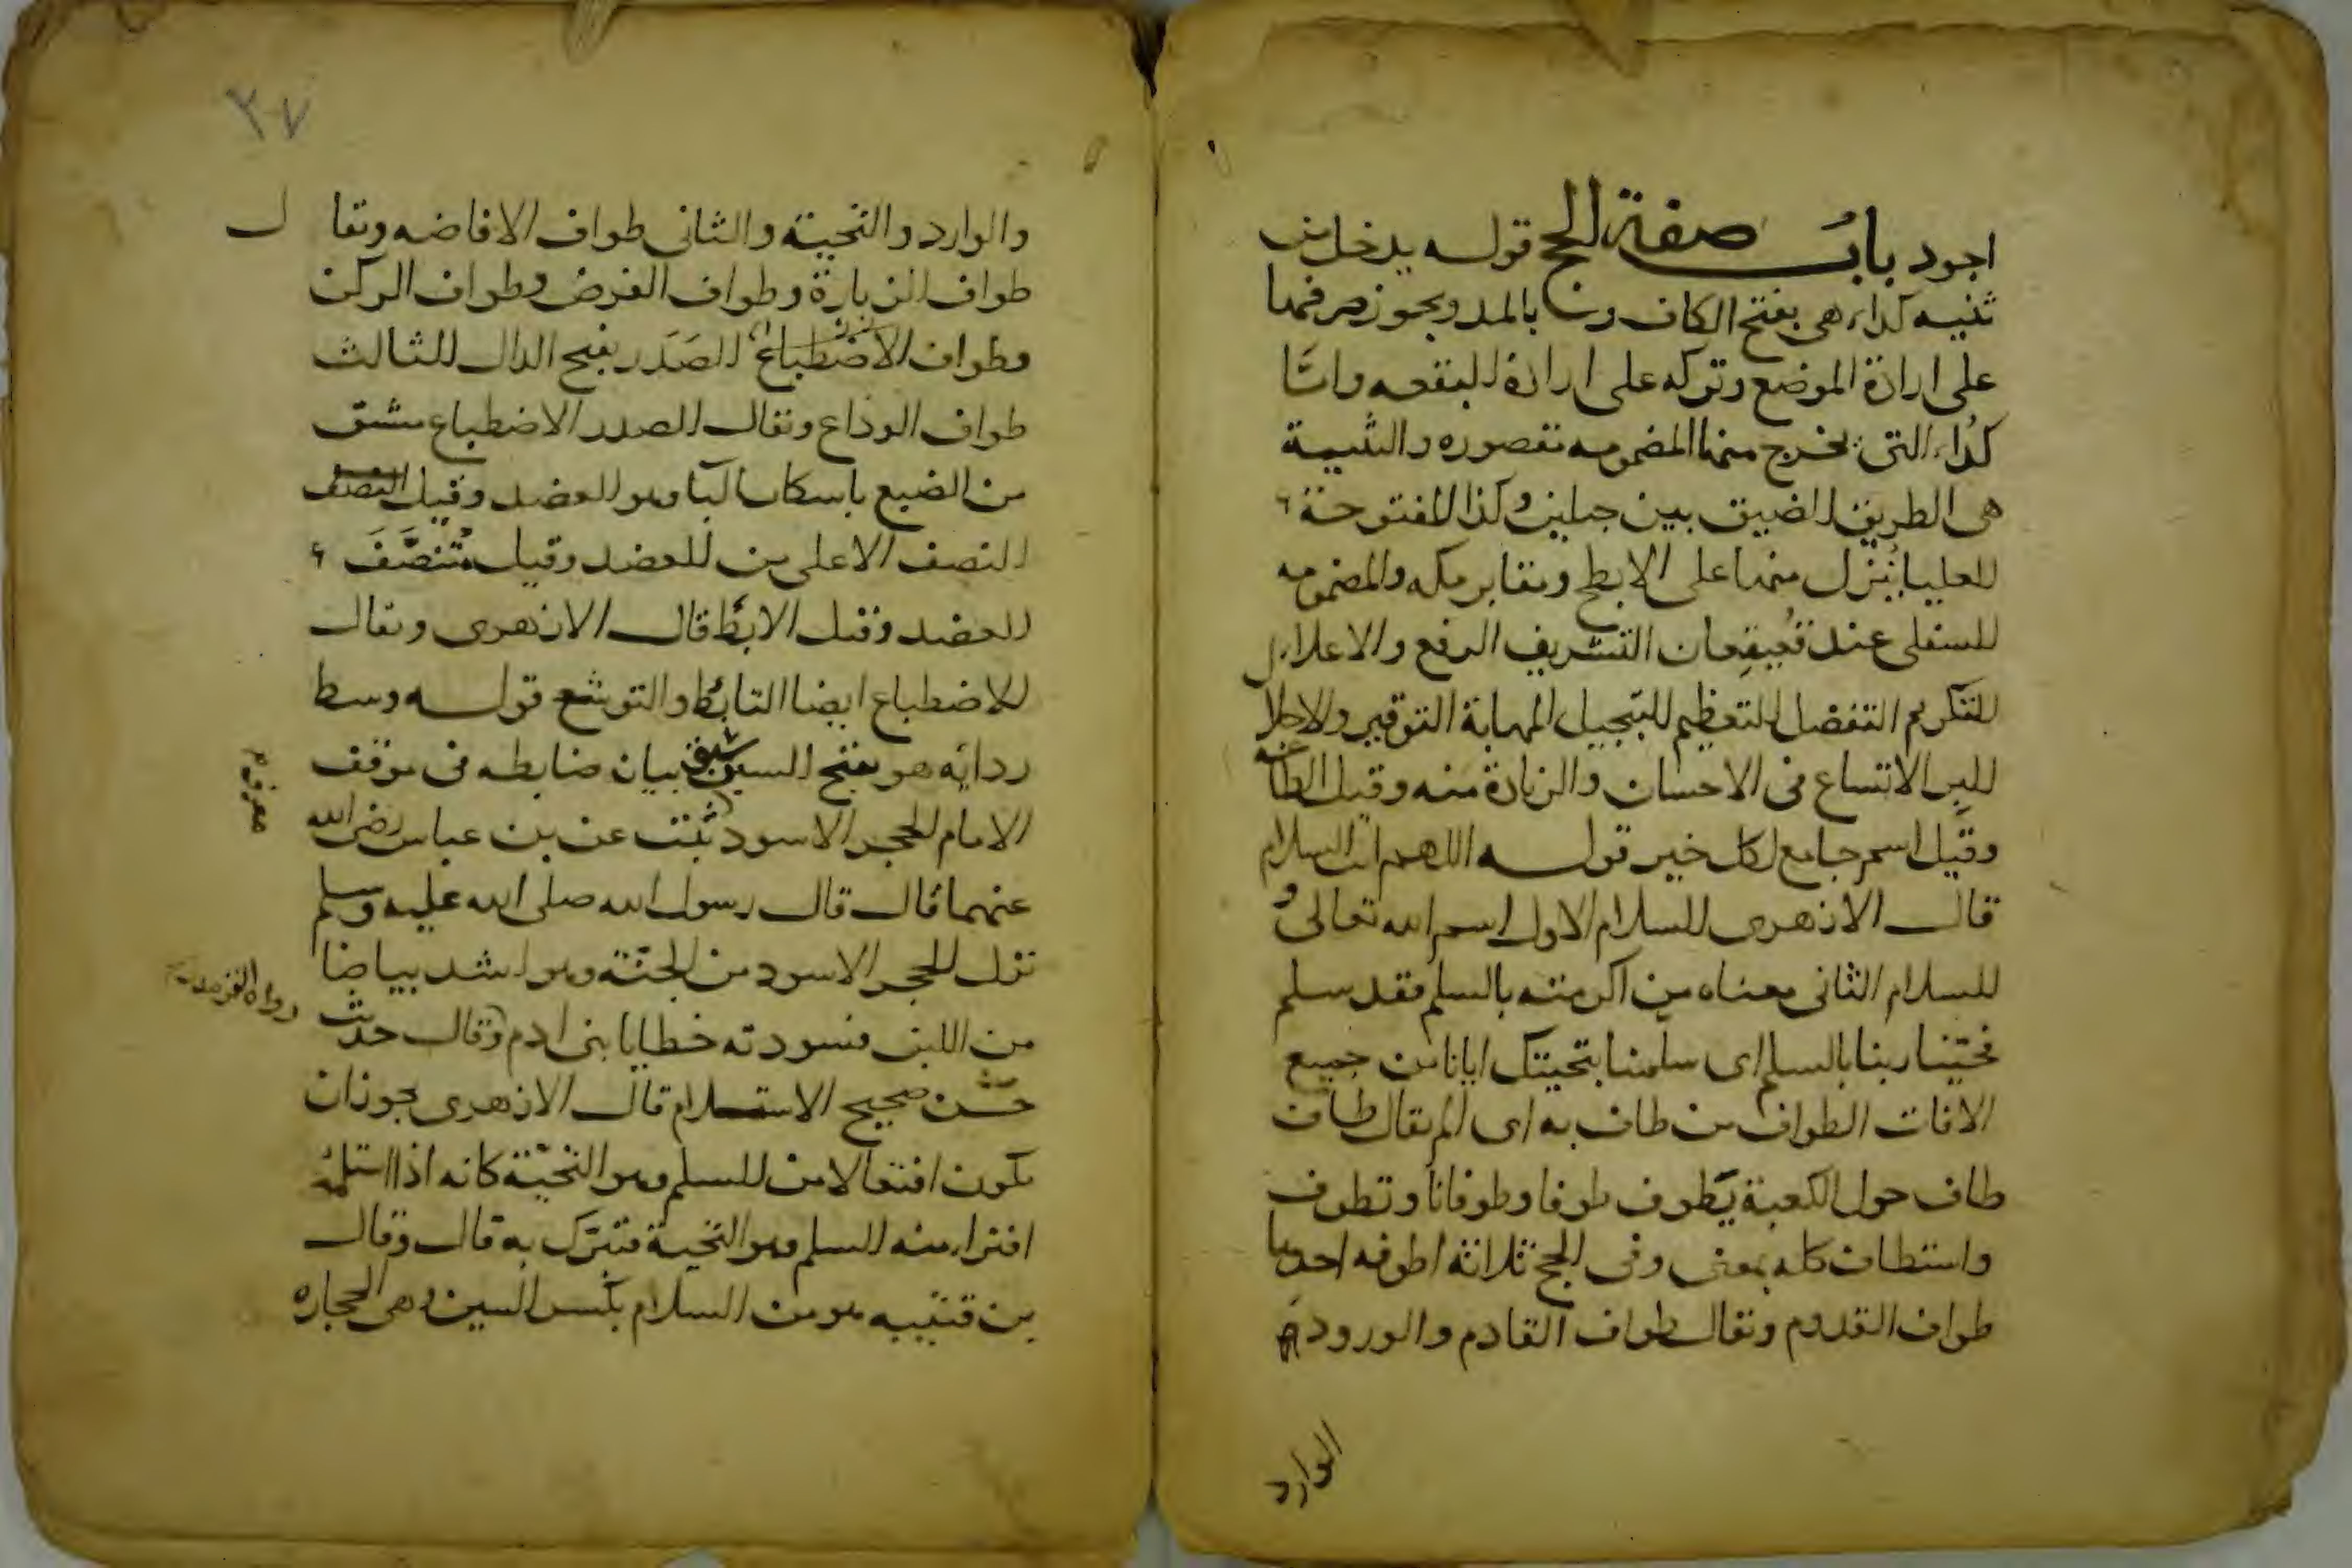 اجود باب صفة الحج قوله يدخل من
ثنيه كداء هي بفتح الكاف وبالمد ويجوز صرفها
على ارادة الموضع وتركه على ارادة البقعه واما
كداء التي يخرج منها المضمومه مقصوره والثنية
هي الطريق الضيق بين جبلين وكذا المفتوحة
العليا ينزل منها على الابطح ومقابر مكه والمضمومه
السفلى عند قعيقعان التشريف الرفع والاعلاء
التكريم التفضل التعظيم التبجيل المهابة التوقير والاجلال
البر الاتساع في الاحسان والزيادة منه وقيل الطاعة
وقيل اسم جامع لكل خير قوله اللهم انت السلام
قال الازهري السلام الاول اسم الله تعالى و
السلام الثاني معناه من اكرمته بالسلم فقد سلم
فحينا ربنا بالسلم اى سلمنا بتحيتك ايانا من جميع
الافات الطواف من طاف به اى الم يقال طاف
طاف حول الكعبة يطوف طوفا وطوفانا وتطوف
واستطاف كله بمعنى وفي الحج ثلاثة اطوفه احدها
طواف القدوم ويقال طواف القادم والورود
الوارد
٢٧
والوارد والتحية والثاني طواف الافاضه ويقال
طواف الزيارة وطواف الفرض وطواف الركن
وطواف الاضطباع الصدر بفتح الدال الثالث
طواف الوداع ويقال الصدر الاضطباع مشتق
من الضبع باسكان البا وهو العضد وقيل النصف
النصف الاعلى من العضد وقيل منتصف
العضد وقيل الابط قال الازهري ويقال
للاضطباع ايضا التابط والتوشح قوله وسط
ردايه هو بفتح السين بيان ضابطه في موقف
الامام الحجر الاسود ثبت عن بن عباس رضي الله
عنهما قال قال رسول الله صلى الله عليه وسلم
نزل الحجر الاسود من الجنة وهو اشد بياضا
رواه الترمذي
من اللبن فسودته خطايا بنى ادم وقال حديث
حسن صحيح الاستلام قال الازهري يجوز ان
يكون افتعالا من السلم وهو التحية كانه اذا استلمه
اقترا منه السلم وهو التحية فتبرك به قال وقال
بن قتيبه هو من السلام بكسر السين وهي الحجاره